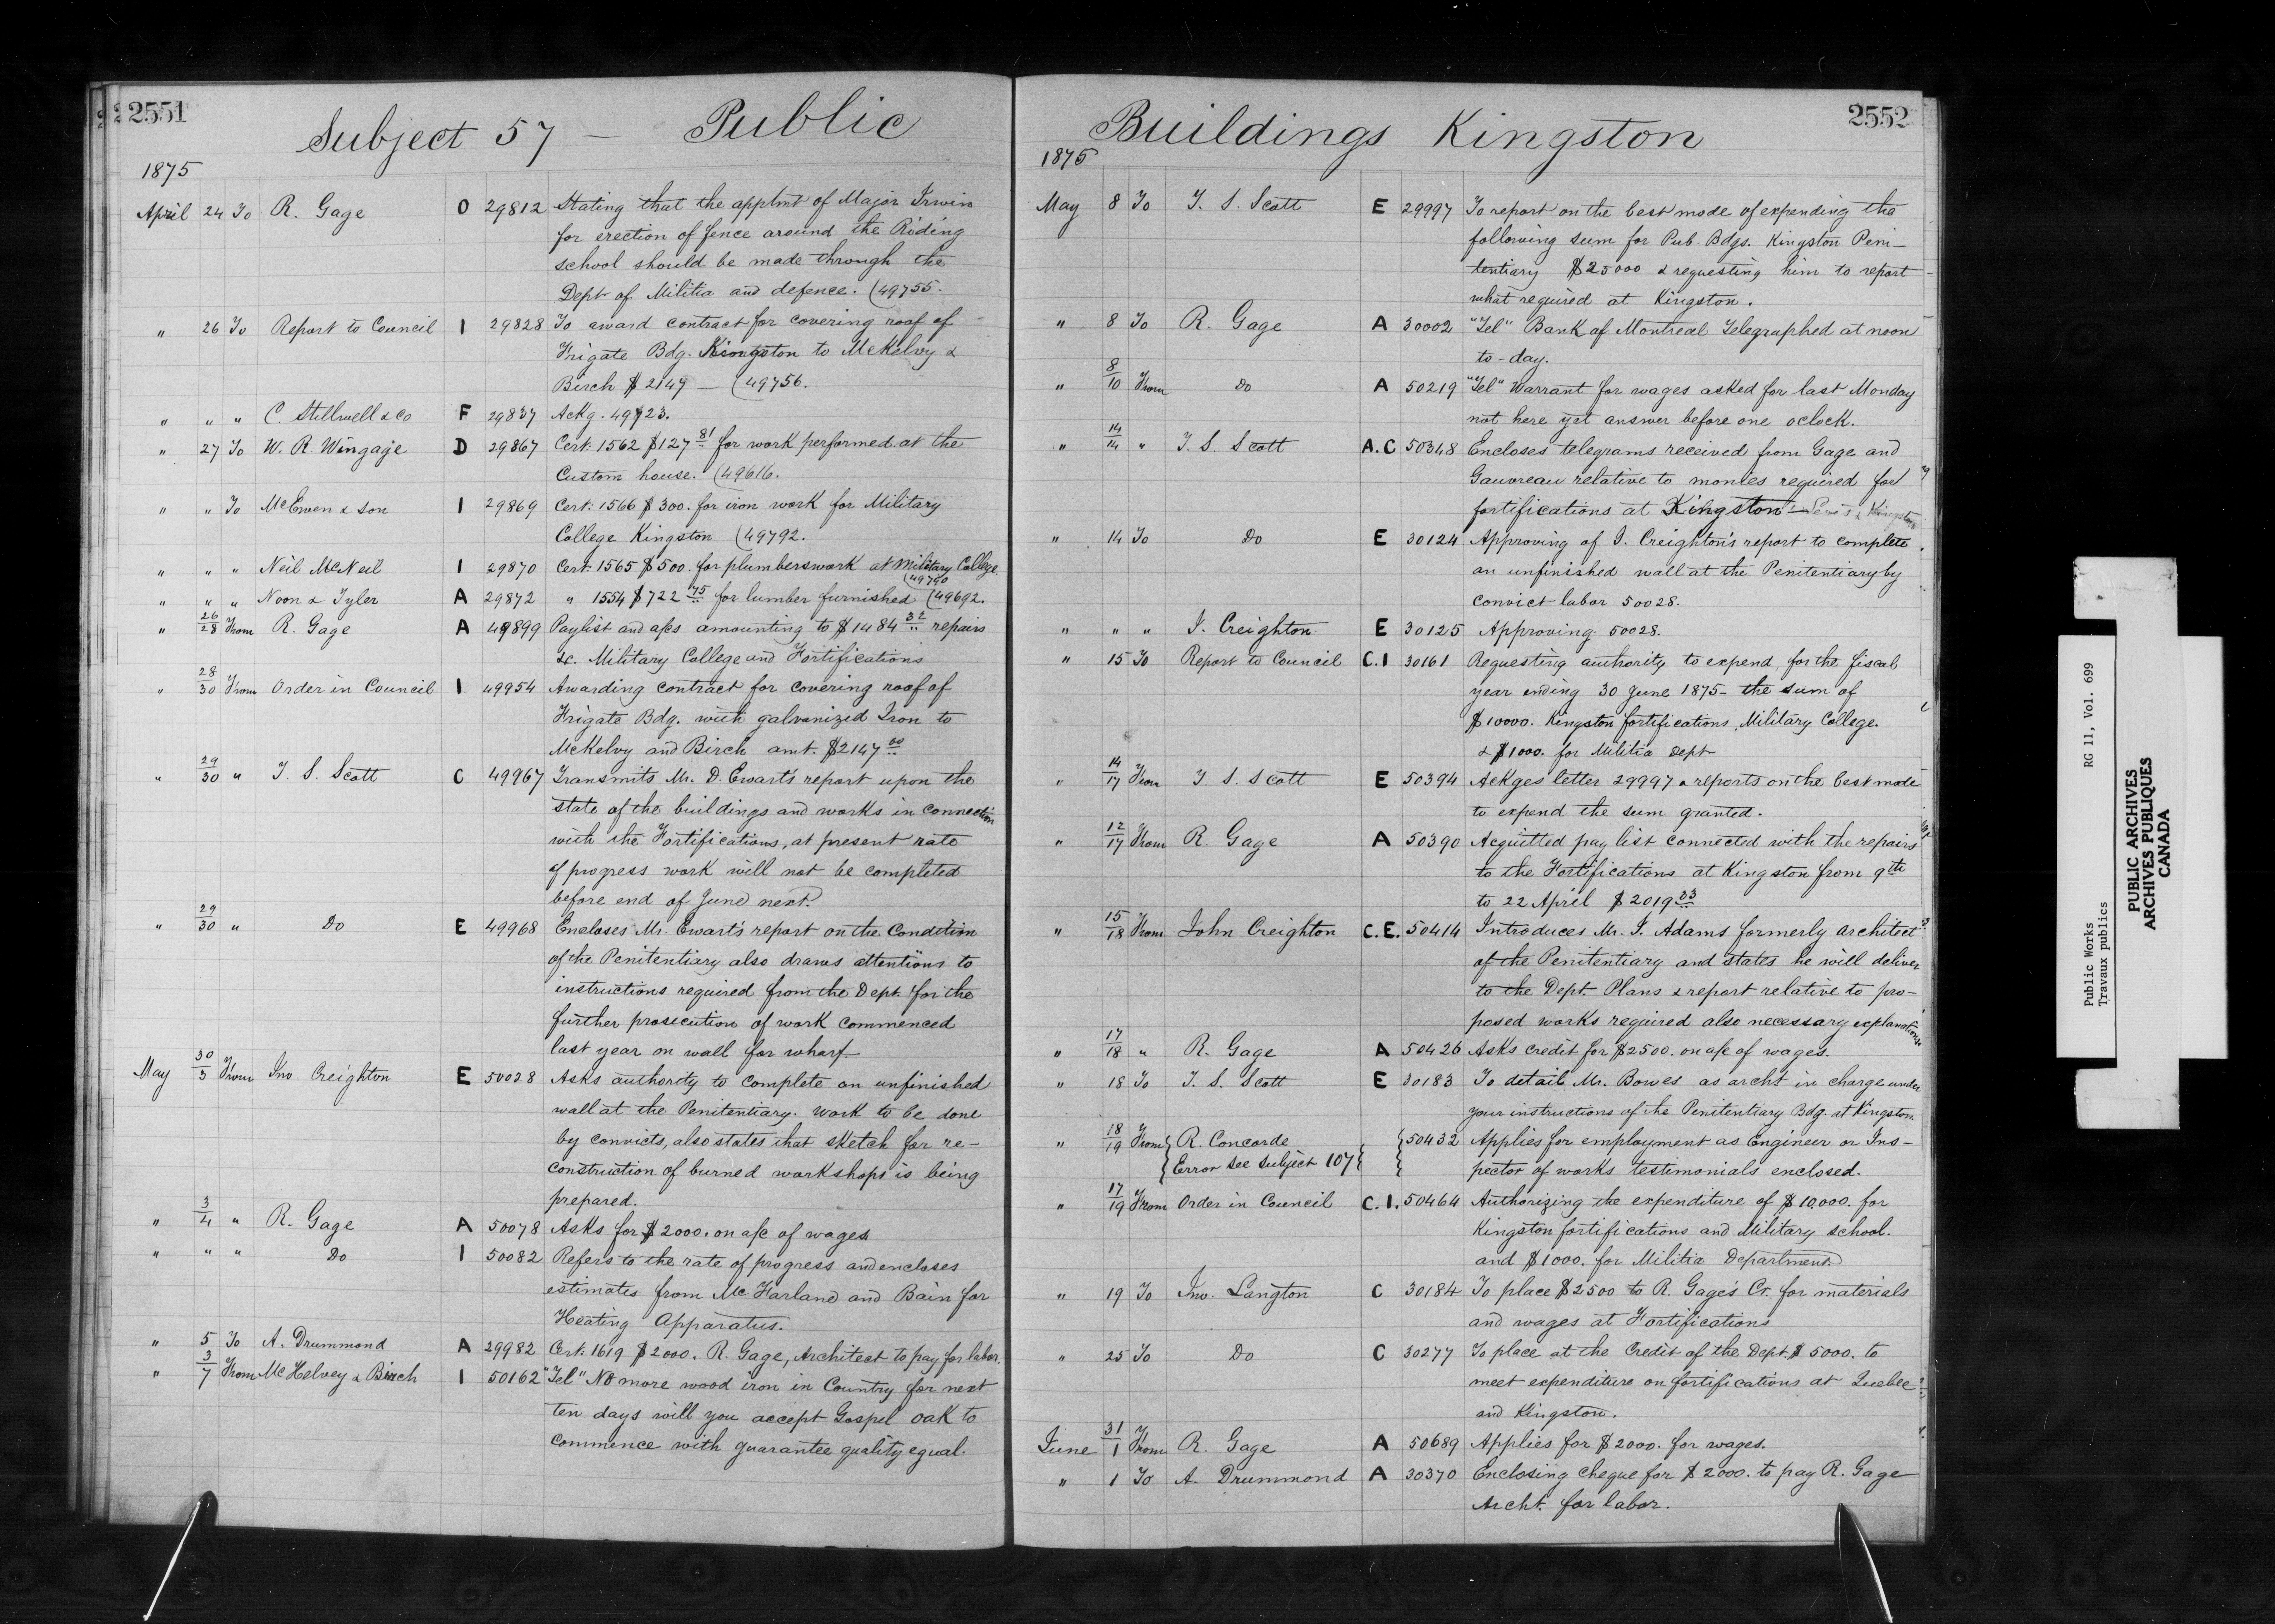 2551
Subject 57 — Public
1875
April 24 To R. Gage O 29812 Stating that the applmt of Major Irwin
for erection of fence around the Riding
school should be made through the
Dept of Militia and defence. (49755.
" 26 To Report to Council I 29828 To award contract for covering roof of
Frigate Bdg. Kingston to McKelvy &
Birch $2147 — (49756.
" " " C. Stillwell & Co F 29837 Ackg. 49723.
" 27 To W. R Wingage D 29867 Cert. 1562 $127 81 for work performed at the
Custom house. (49616.
" " To McEwen & Son I 29869 Cert. 1566 $300. for iron work for Military
College Kingston (49792.
" " " Neil McNeil I 29870 Cert. 1565 $500. for plumberswork at Military College
(49790
" " " Noon & Tyler A 29872 " 1554 $722 75 for lumber furnished (49692.
" 26/28 From R. Gage A 49899 Paylist and a/cs amounting to $1484 32 repairs
&c. Military College and Fortifications
" 28/30 From Order in Council I 49954 Awarding contract for covering roof of
Frigate Bdg. with galvanized Iron to
McKelvy and Birch amt. $2147 00
" 29/30 " T. S. Scott C 49967 Transmits Mr. D. Ewart's report upon the
state of the buildings and works in connection
with the Fortifications, at present rate
of progress work will not be completed
before end of June next.
" 29/30 " Do E 49968 Encloses Mr. Ewart's report on the Condition
of the Penitentiary also draws attentions to
instructions required from the Dept. for the
further prosicution of work commenced
last year on wall for wharf.
May 30/3 From Jno. Creighton E 50028 Asks authority to complete an unfinished
wall at the Penitentiary. Work to be done
by convicts, also states that sketch for re-
construction of burned workshops is being
prepared.
" 3/4 " R. Gage A 50078 Asks for $2000. on a/c of wages
" " " Do I 50082 Refers to the rate of progress and encloses
estimates from McFarland and Bain for
Heating Apparatus.
" 5 To A. Drummond A 29982 Cert. 1619 $2000. R. Gage, Architect to pay for labor.
" 3/7 From McKelvey & Birch I 50162 "Tel" No more wood iron in Country for next
ten days will you accept Gospel oak to
commence with guarantee quality equal.
2552
Buildings Kingston
1875
May 8 To T. S. Scott E 29997 To report on the best mode of expending the
following sum for Pub Bdgs. Kingston Peni-
tentiary $25000 & requesting him to report
what required at Kingston.
" 8 To R. Gage A 30002 "Tel" Bank of Montreal Telegraphed at noon
to-day.
" 8/10 From Do A 50219 "Tel" Warrant for wages asked for last Monday
not here yet answer before one oclock.
" 14/14 " T. S. Scott A.C 50348 Encloses telegrams received from Gage and
Gauvreau relative to monies required for
fortifications at Kingston
" 14 To Do E 30124 Approving of J. Creighton's report to complete
an unfinished wall at the Penitentiary by
convict labor 50028.
" " " J. Creighton E 30125 Approving 50028.
" 15 To Report to Council C.I 30161 Requesting authority to expend, for the fiscal
year ending 30 June 1875 - the sum of
$10000. Kingston fortifications, Military College.
& $1000. for Militia Dept
" 14/17 From T. S. Scott E 50394 Ackges letter 29997 & reports on the best mode
to expend the sum granted.
" 12/17 From R. Gage A 50390 Acquitted pay list connected with the repairs
to the Fortifications at Kingston from 9th
to 22 April $2019 33
" 15/18 From John Creighton C.E. 50414 Introduces Mr. J. Adams formerly architect
of the Penitentiary and states he will deliver
to the Dept. Plans & report relative to pro-
posed works required also necessary explanations
" 17/18 " R. Gage A 50426 Asks credit for $2500. on a/c of wages.
" 18 To T. S. Scott E 30183 To detail Mr. Bowes as archt in charge under
your instructions of the Penitentiary Bdg. at Kingston
" 18/19 From R. Concorde 50432 Applies for employment as Engineer or Ins-
Error see Subject 107 pector of works testimonials enclosed.
" 17/19 From Order in Council C.I. 50464 Authorizing the expenditure of $10,000. for
Kingston fortifications and Military School.
and $1000. for Militia Department
" 19 To Jno. Langton C 30184 To place $2500 to R. Gage's Cr. for materials
and wages at Fortifications
" 25 To Do C 30277 To place at the Credit of the Dept $5000. to
meet expenditure on fortifications at Quebec
and Kingston.
June 31/1 From R. Gage A 50689 Applies for $2000. for wages.
" 1 To A. Drummond A 30370 Enclosing cheque for $2000. to pay R. Gage
Archt. for labor.
Public Works RG 11, Vol. 699
Travaux publics
PUBLIC ARCHIVES
ARCHIVES PUBLIQUES
CANADA